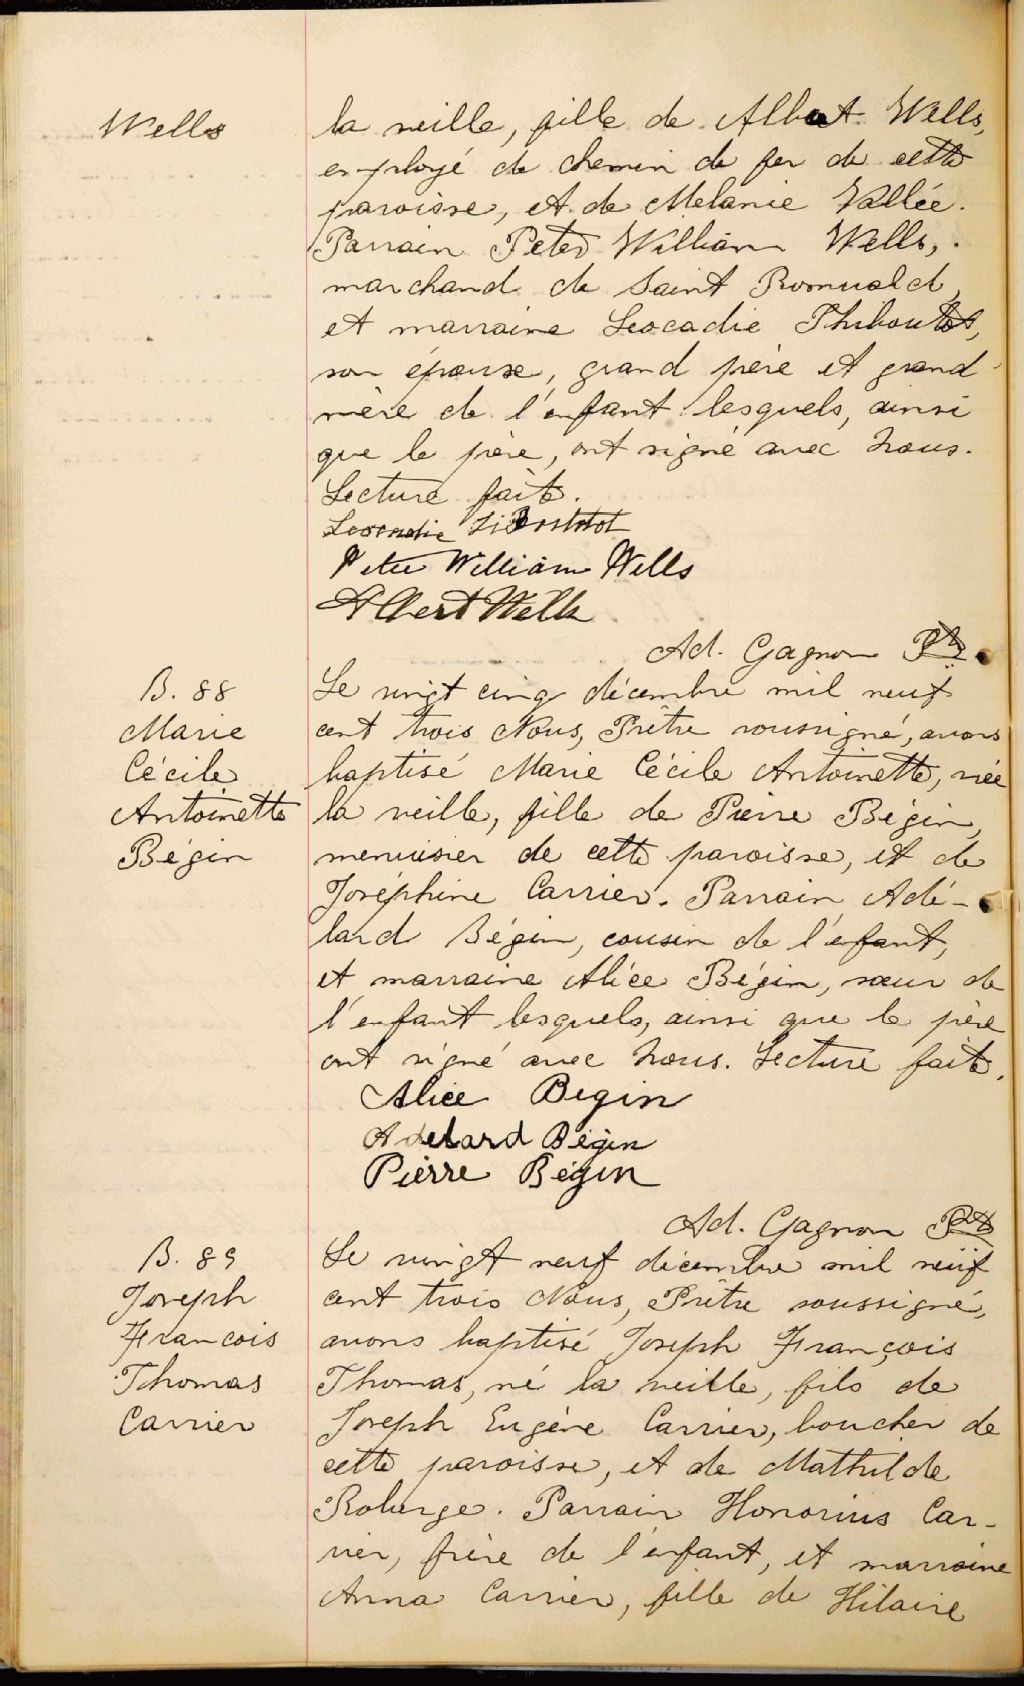 Wells
la veille, fille de Albert Wells,
employé de chemin de fer de cette
paroisse, et de Melanie Vallée.
Parrain Peter William Wells,
marchand de Saint Romuald,
et marraine Leocadie Thiboutot,
son épouse, grand père et grand
mère de l'enfant lesquels, ainsi
que le père, ont signé avec nous.
Lecture faite.
Leocadie
Peter William Wells
Albert Wells
Ad. Gagnon Ptre
B. 88
Marie
Cécile
Antoinette
Bégin
Le vingt cinq décembre mil neuf
cent trois Nous, Prêtre soussigné, avons
baptisé Marie Cécile Antoinette, née
la veille, fille de Pierre Bégin,
menuisier de cette paroisse, et de
Joséphine Carrier. Parrain Adé-
lard Bégin, cousin de l'enfant,
et marraine Alice Bégin, sœur de
l'enfant lesquels, ainsi que le père
ont signé avec nous. Lecture faite.
Alice Begin
Adelard Bégin
Pierre Bégin
Ad. Gagnon Ptre
B. 89
Joseph
François
Thomas
Carrier
Le vingt neuf décembre mil neuf
cent trois Nous, Prêtre soussigné,
avons baptisé Joseph François
Thomas, né la veille, fils de
Joseph Eugène Carrier, boucher de
cette paroisse, et de Mathilde
Roberge. Parrain Honorius Car-
rier, frère de l'enfant, et marraine
Anna Carrier, fille de Hilaire